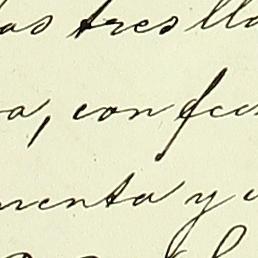 las tres lla
a, con fec
menta y u